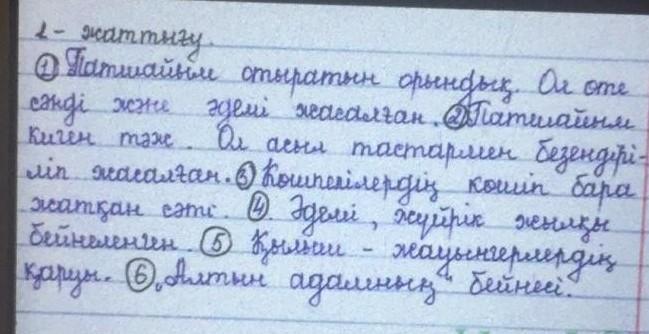 1 - жаттығу.
① Патшайым отыратын орындық. Ол өте
сәнді және әдемі жасалған. ② Патшайым
киген тәж. Ол асыл тастармен безендірі-
ліп жасалған. ③ Көшпелілердің көшіп бара
жатқан сәті. ④ Әдемі, жүйрік жылқы
бейнеленген. ⑤ Қылыш - жауынгерлердің
қаруы. ⑥ „Алтын адамның" бейнесі.